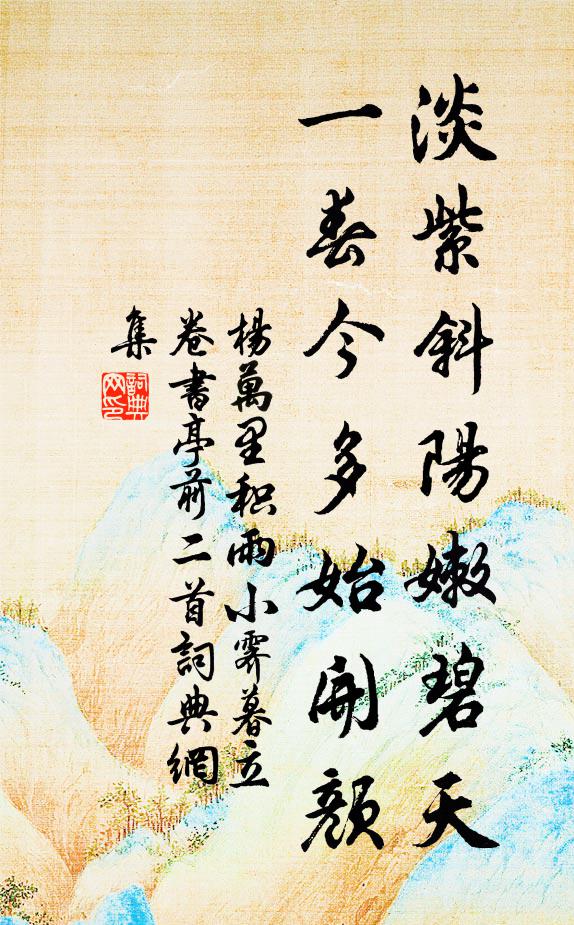 淡紫斜陽嫩碧天
一春今多始開顏
楊萬里积雨小霽暮立
卷書亭前二首詞典網
集
詞典
网印